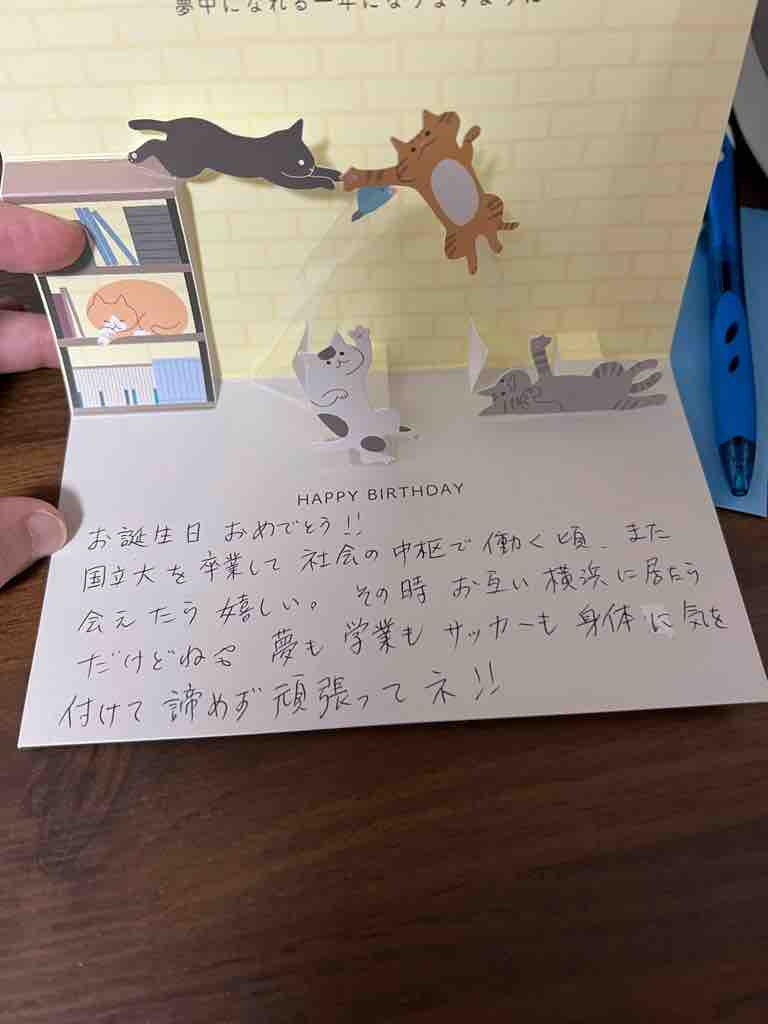 夢中になれる一年になりますように
HAPPY BIRTHDAY
お誕生日 おめでとう!!
国立大を卒業して 社会の中枢で働く頃、また
会えたら嬉しい。 その時 お互い 横浜に居たら
だけどね 夢も 学業も サッカーも 身体に気を
付けて 諦めず 頑張ってネ!!